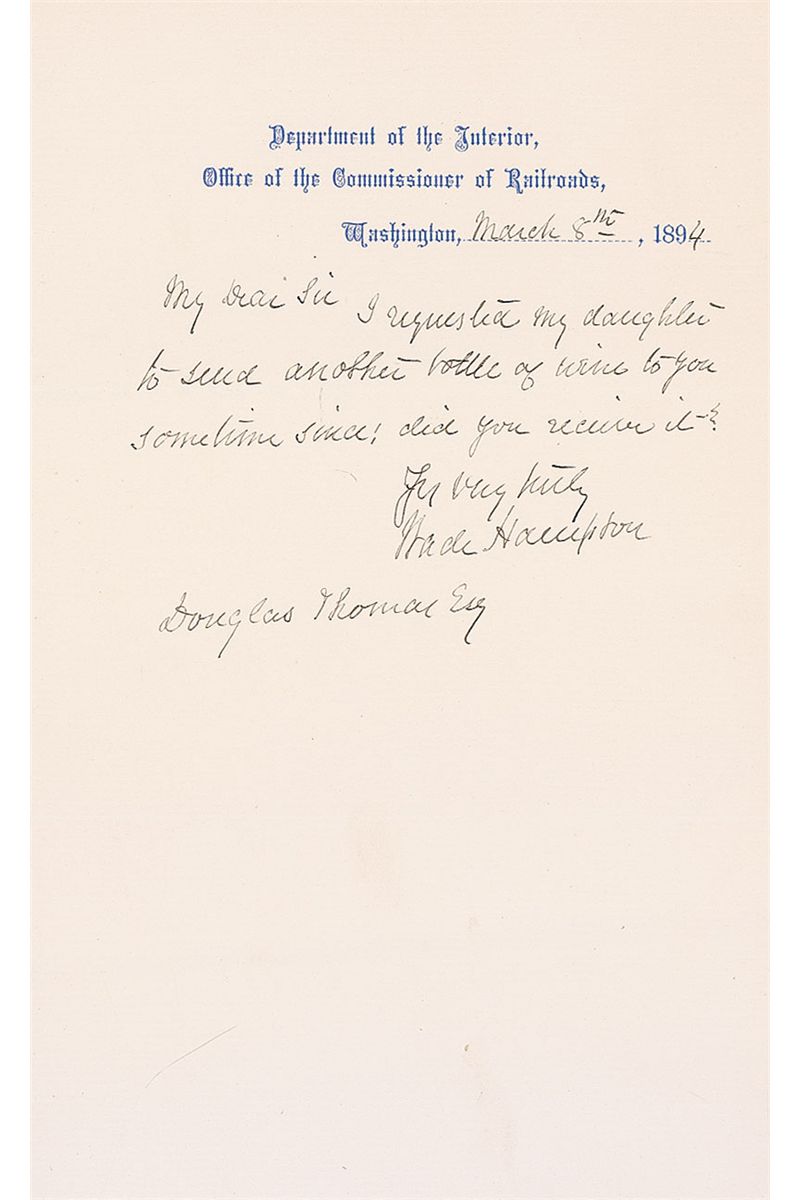 Department of the Interior,
Office of the Commissioner of Railroads,
Washington, March 8th, 1894
My Dear Sir
I requested my daughter
to send another bottle of wine to you
sometime since; did you receive it?
Yrs very truly
Wade Hampton
Douglas Thomas Esq